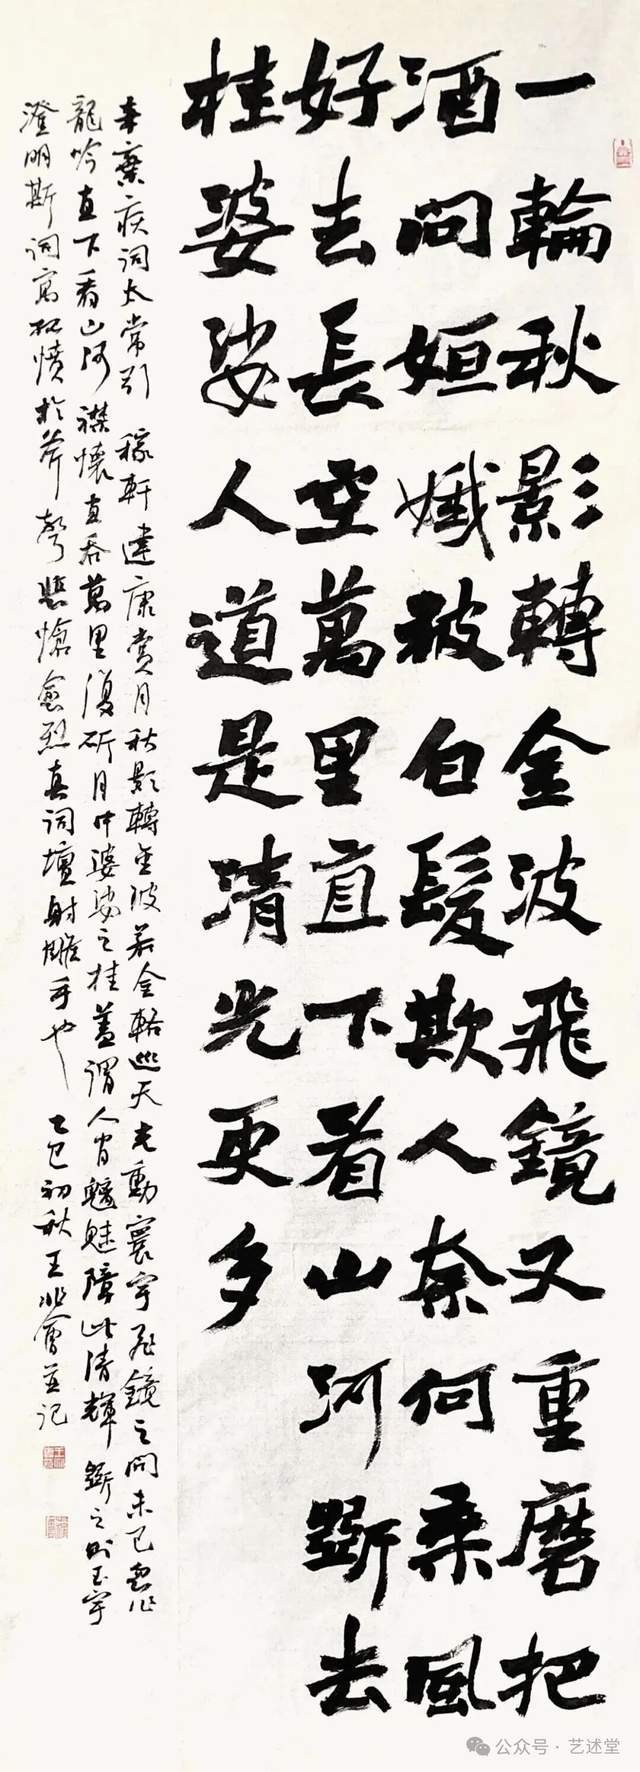 一輪秋影轉金波飛鏡又重磨把
酒問姮娥被白髮欺人奈何乘風
好去長空萬里直下看山河斲去
桂婆娑人道是清光更多
辛棄疾詞太常引 稼軒建康賞月秋影轉金波若金輅巡天光動寰宇飛鏡之問未已作
龍吟直下看山河襟懷直吞萬里復斫月中婆娑之桂蓋謂人間魑魅障此清輝斲之則玉宇
澄明斯詞寓孤憤於斧聲悲愴愈烈真詞壇射鵰手也 乙巳初秋王兆會並記
公众号·艺述堂